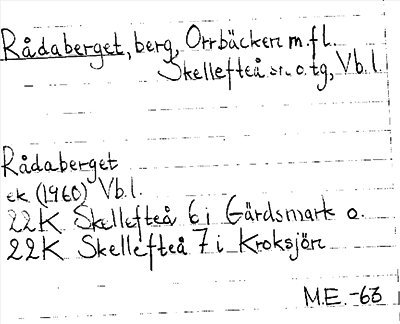 Rådaberget, berg, Orrbäcken m.fl.
Skellefteå sn. o. tg, Vb.l.
Rådaberget
ek (1960) Vb.l.
22K Skellefteå 6i Gärdsmark o.
22K Skellefteå 7i Kroksjön
M.E. -63